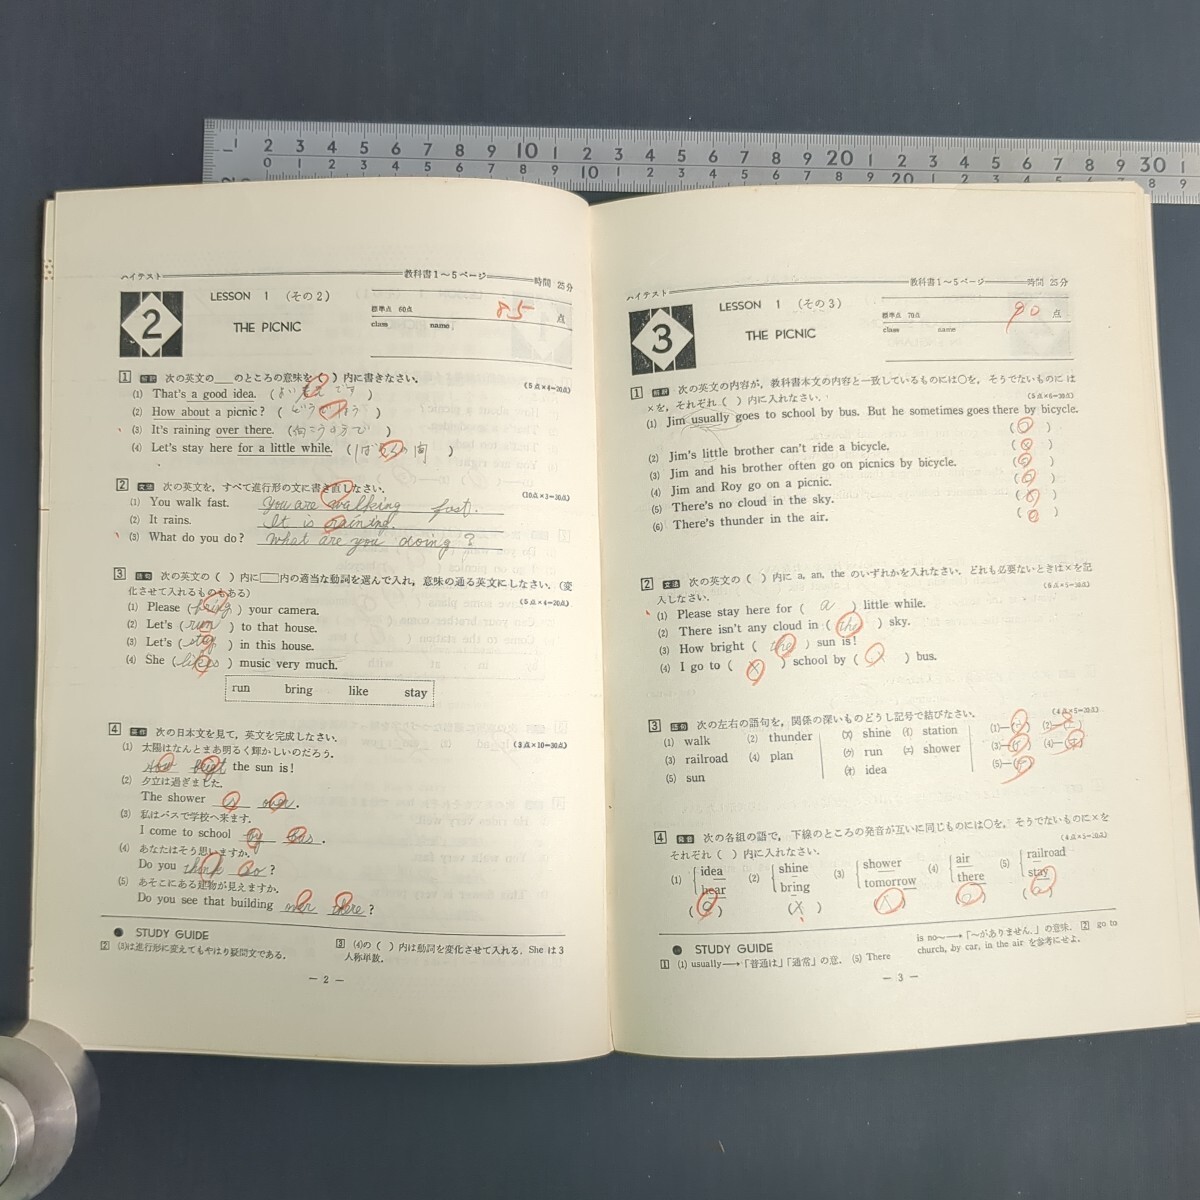 ハイテスト 教科書1～5ページ 時間 25分
2
LESSON 1 (その2)
THE PICNIC
標準点 60点
85 点
class name
1 次の英文の__のところの意味を( )内に書きなさい。
(5点×4=20点)
(1) That's a good idea.
(2) How about a picnic?
(3) It's raining over there. (向こうの方で)
(4) Let's stay here for a little while. (しばらくの間)
2 文法 次の英文を，すべて進行形の文に書き直しなさい．
(10点×3=30点)
(1) You walk fast. You are walking fast.
(2) It rains. It is raining.
(3) What do you do? What are you doing?
3 語句 次の英文の( )内に□内の適当な動詞を選んで入れ，意味の通る英文にしなさい．(変化させて入れるものもある)
(5点×4=20点)
(1) Please (bring) your camera.
(2) Let's (run) to that house.
(3) Let's (stay) in this house.
(4) She (likes) music very much.
run bring like stay
4 英作 次の日本文を見て，英文を完成しなさい．
(3点×10=30点)
(1) 太陽はなんとまあ明るく輝かしいのだろう．
How the sun is!
(2) 夕立は過ぎました．
The shower is over.
(3) 私はバスで学校へ来ます．
I come to school by bus.
(4) あなたはそう思いますか．
Do you think so?
(5) あそこにある建物が見えますか．
Do you see that building over there?
● STUDY GUIDE
2 (3)は進行形に変えてもやはり疑問文である．
3 (4)の( )内は動詞を変化させて入れる．She は3人称単数．
— 2 —
ハイテスト 教科書1～5ページ 時間 25分
3
LESSON 1 (その3)
THE PICNIC
標準点 70点
90 点
class name
1 次の英文の内容が，教科書本文の内容と一致しているものには○を，そうでないものには
×を，それぞれ( )内に入れなさい．
(5点×6=30点)
(1) Jim usually goes to school by bus. But he sometimes goes there by bicycle.
(2) Jim's little brother can't ride a bicycle.
(3) Jim and his brother often go on picnics by bicycle.
(4) Jim and Roy go on a picnic.
(5) There's no cloud in the sky.
(6) There's thunder in the air.
2 文法 次の英文の( )内に a, an, the のいずれかを入れなさい．どれも必要ないときは×を記
入しなさい．
(1) Please stay here for ( a ) little while.
(2) There isn't any cloud in ( the ) sky.
(3) How bright ( the ) sun is!
(4) I go to ( × ) school by ( × ) bus.
3 語句 次の左右の語句を，関係の深いものどうし記号で結びなさい．
(4点×5=20点)
(1) walk (2) thunder
(3) railroad (4) plan
(5) sun
(ア) shine (イ) station
(ウ) run (エ) shower
(オ) idea
(1)—( ) (2)—( )
(3)—( ) (4)—( )
(5)—( )
4 発音 次の各組の語で，下線のところの発音が互いに同じものには○を，そうでないものに×を
それぞれ( )内に入れなさい．
(4点×5=20点)
(1) idea hear
(2) shine bring (×)
(3) shower tomorrow
(4) air there
(5) railroad stay
● STUDY GUIDE
1 (1) usually→「普通は」「通常」の意．(5) There
is no～→「～がありません．」の意味．2 go to
church, by car, in the air を参考にせよ．
— 3 —